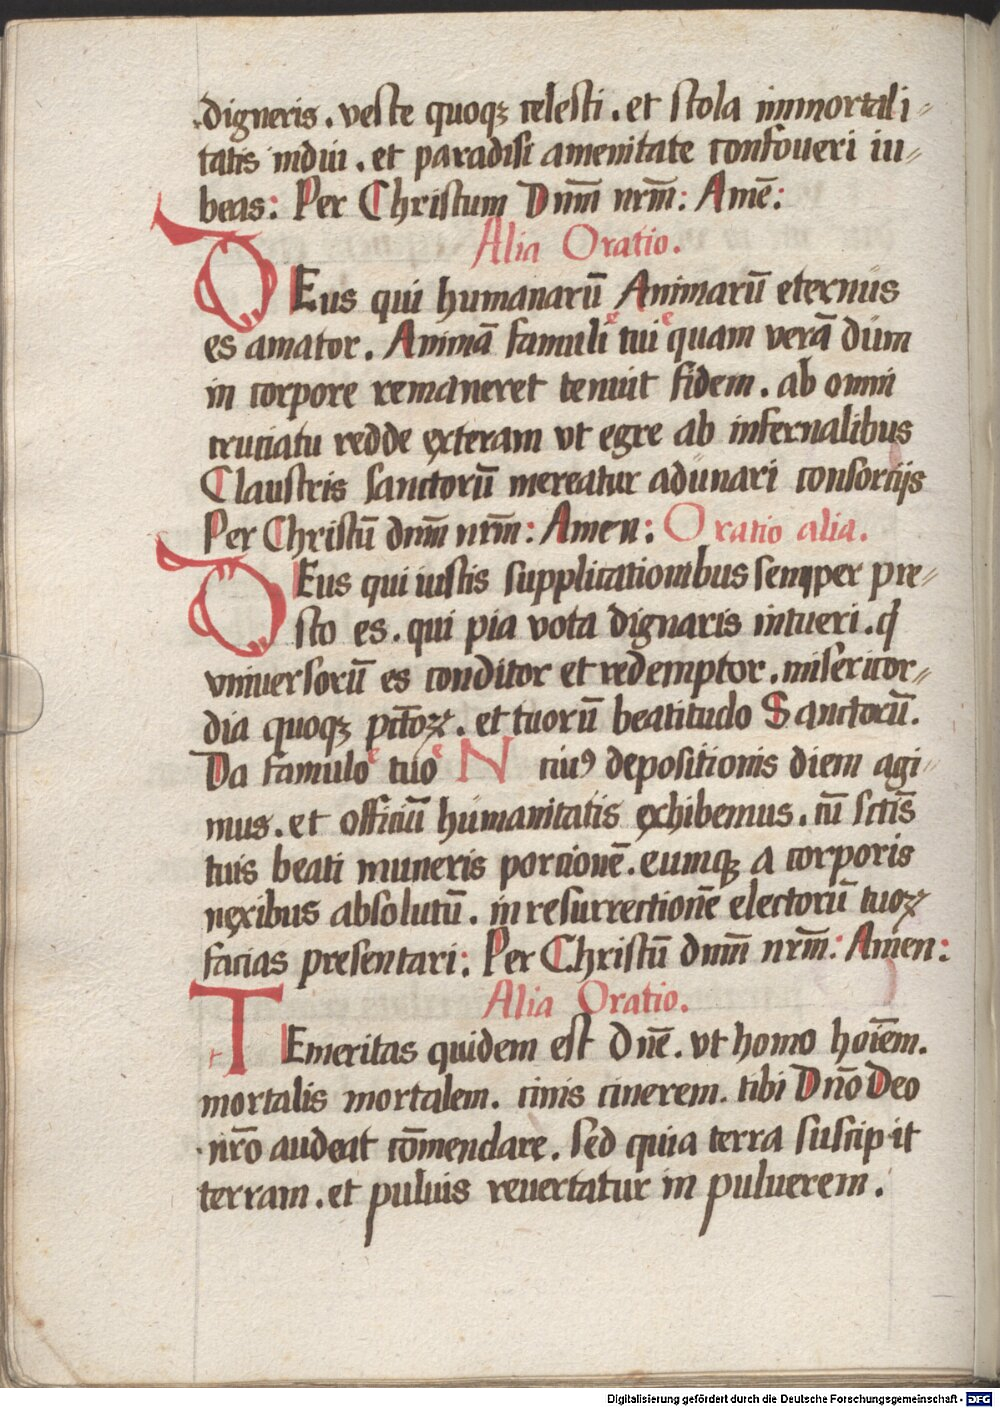 digneris . veste quoqꝫ celesti . et stola immortali-
tatis indui . et paradisi amenitate confoueri iu-
beas: Per Christum Dnm̄ nrm̄: Amē:
Alia Oratio.
DEus qui humanarū Animarū eternus
es amator. Animā famuli tui quam verā dum
e e
in corpore remaneret tenuit fidem. ab omni
cruciatu redde exteram vt egre ab infernalibus
Claustris sanctorū mereatur adunari consorcijs
Per Christū dnm̄ nrm̄: Amen: Oratio alia.
DEus qui iustis supplicationibus semper pre-
sto es. qui pia vota dignaris intueri. q̄
vniuersorū es conditor et redemptor. misericor-
dia quoqꝫ pcto̅ꝝ. et tuorū beatitudo Sanctorū.
Da famulo e tuo e N cuiꝰ depositionis diem agi-
mus. et officiū humanitatis exhibemus. cū sctis̄
tuis beati muneris porcionē. eumqꝫ a corporis
nexibus absolutū. in resurrectionē electorū tuoꝝ
facias presentari: Per Christū dnm̄ nrm̄: Amen:
Alia Oratio.
TEmeritas quidem est Dnē. vt homo hoiēm.
mortalis mortalem. cinis cinerem. tibi Dnō Deo
nrō audeat cōmendare. Sed quia terra suscipit
terram. et puluis reuertatur in puluerem.
Digitalisierung gefördert durch die Deutsche Forschungsgemeinschaft - DFG